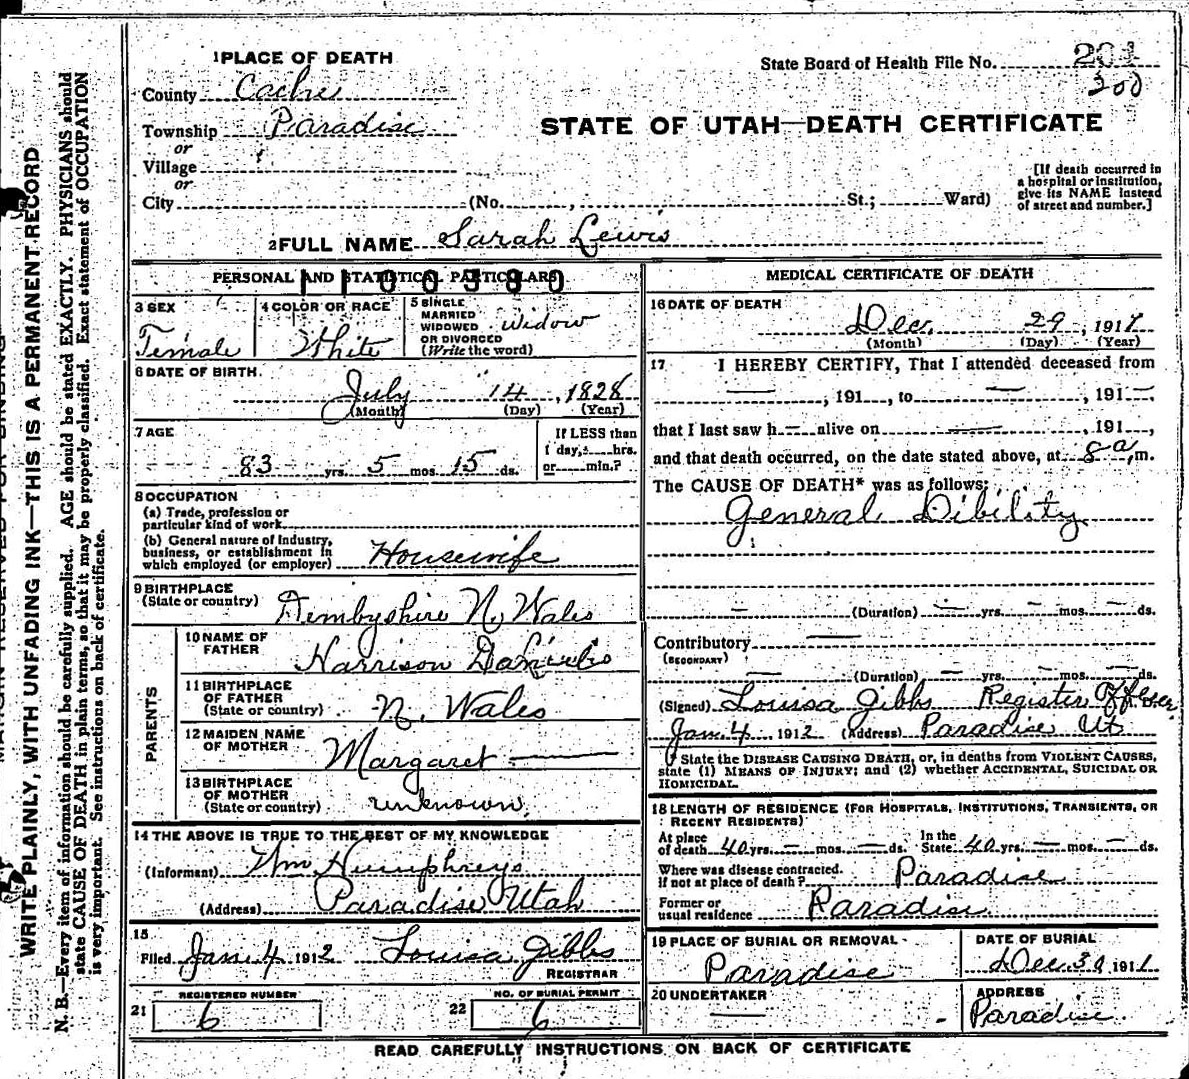 1 PLACE OF DEATH
County Cache
State Board of Health File No. 201
200
Township Paradise
or
STATE OF UTAH—DEATH CERTIFICATE
Village
or
City (No. , St.; Ward)
[If death occurred in
a hospital or institution,
give its NAME instead
of street and number.]
2 FULL NAME Sarah Lewis
PERSONAL AND STATISTICAL PARTICULARS
1100380
3 SEX
Female
4 COLOR OR RACE
White
5 SINGLE
MARRIED
WIDOWED
OR DIVORCED
(Write the word)
Widow
6 DATE OF BIRTH
July 14, 1828
(Month) (Day) (Year)
7 AGE
83 yrs. 5 mos. 15 ds.
If LESS than
1 day, hrs.
or min.?
8 OCCUPATION
(a) Trade, profession or
particular kind of work
(b) General nature of industry,
business, or establishment in
which employed (or employer) Housewife
9 BIRTHPLACE
(State or country) Dembyshire N. Wales
PARENTS
10 NAME OF
FATHER Harrison Daniels
11 BIRTHPLACE
OF FATHER
(State or country) N. Wales
12 MAIDEN NAME
OF MOTHER Margaret —
13 BIRTHPLACE
OF MOTHER
(State or country) unknown
14 THE ABOVE IS TRUE TO THE BEST OF MY KNOWLEDGE
(Informant) Wm Humphreys
(Address) Paradise Utah
15
Filed Jan. 4 1912 Louisa Gibbs
REGISTRAR
REGISTERED NUMBER
21 6
NO. OF BURIAL PERMIT
22 6
MEDICAL CERTIFICATE OF DEATH
16 DATE OF DEATH
Dec. 29, 1911
(Month) (Day) (Year)
17 I HEREBY CERTIFY, That I attended deceased from
—, 191 , to —, 191—,
that I last saw h— alive on —, 191 ,
and that death occurred, on the date stated above, at 8 a, m.
The CAUSE OF DEATH* was as follows:
General Dibility
— (Duration) — yrs. — mos. — ds.
Contributory —
(SECONDARY)
— (Duration) — yrs. — mos. — ds.
(Signed) Louisa Gibbs Register Officer
Jan. 4 1912 (Address) Paradise Ut
* State the DISEASE CAUSING DEATH, or, in deaths from VIOLENT CAUSES,
state (1) MEANS OF INJURY; and (2) whether ACCIDENTAL, SUICIDAL OR
HOMICIDAL.
18 LENGTH OF RESIDENCE (FOR HOSPITALS, INSTITUTIONS, TRANSIENTS, OR
RECENT RESIDENTS)
At place
of death 40 yrs. — mos. — ds.
In the
State 40 yrs. — mos. — ds.
Where was disease contracted.
if not at place of death? Paradise
Former or
usual residence Paradise
19 PLACE OF BURIAL OR REMOVAL
Paradise
DATE OF BURIAL
Dec. 30, 1911
20 UNDERTAKER
—
ADDRESS
Paradise
READ CAREFULLY INSTRUCTIONS ON BACK OF CERTIFICATE
WRITE PLAINLY, WITH UNFADING INK—THIS IS A PERMANENT RECORD
N. B.—Every item of information should be carefully supplied. AGE should be stated EXACTLY. PHYSICIANS should
state CAUSE OF DEATH in plain terms, so that it may be properly classified. Exact statement of OCCUPATION
is very important. See instructions on back of certificate.